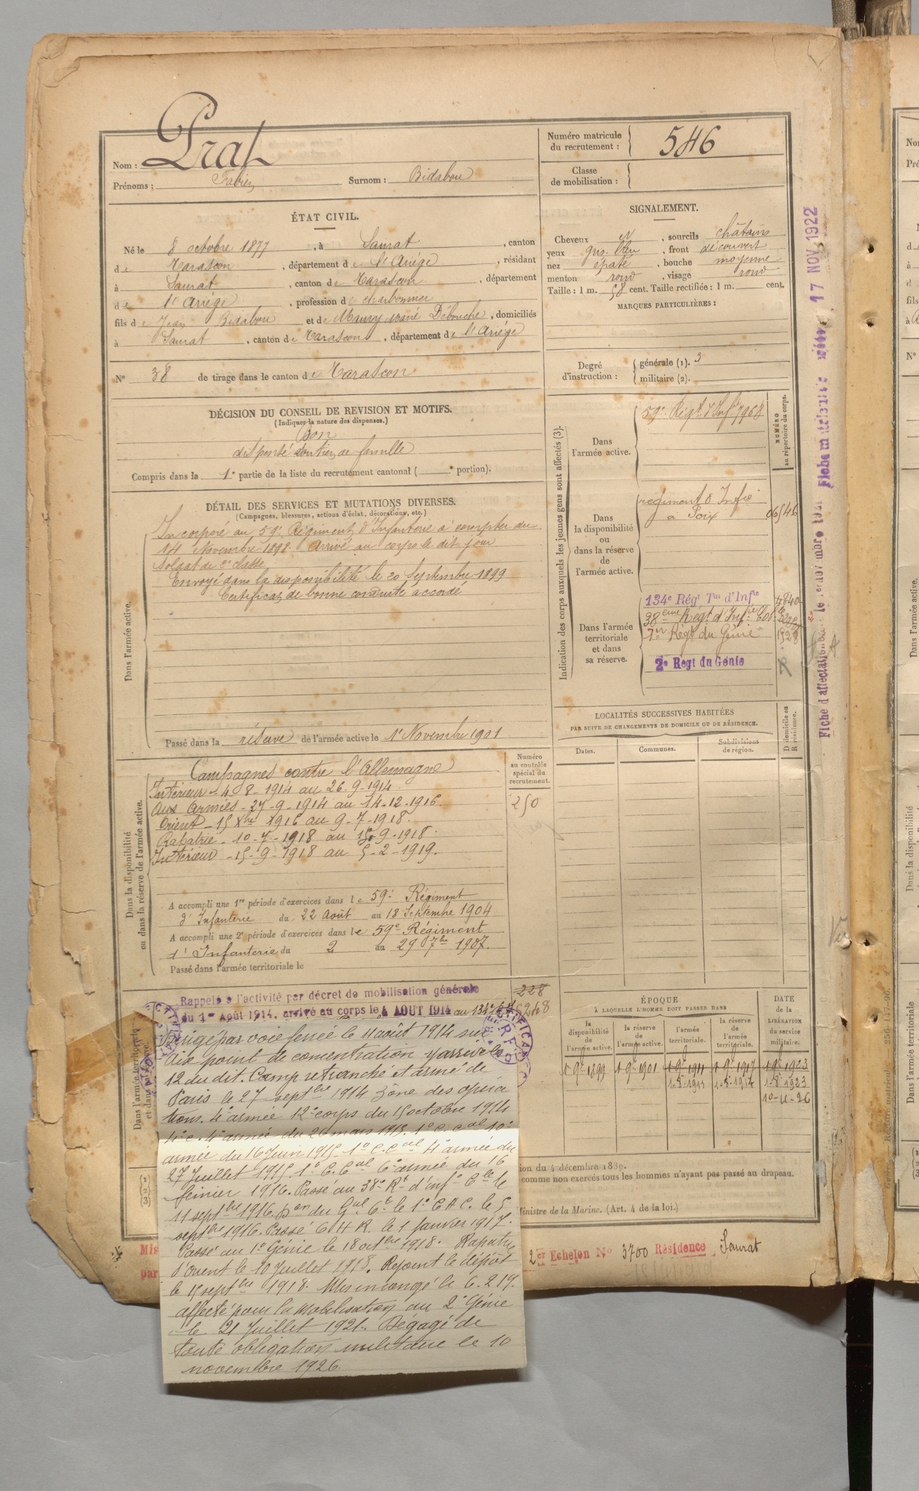 Nom : Prat
Prénoms : Fabien Surnom : Bidabou
Numéro matricule du recrutement : 546
Classe de mobilisation :
ÉTAT CIVIL.
Né le 8 octobre 1877, à Saurat, canton
de Tarascon, département de l'Ariège, résidant
à Saurat, canton de Tarascon, département
de l'Ariège, profession de charbonnier
fils de Jean Bidabou et de Maury Marie Débouche, domiciliés
à Saurat, canton de Tarascon, département de l'Ariège
N° 38 de tirage dans le canton de Tarascon
SIGNALEMENT.
Cheveux N, sourcils châtains
yeux gris bleu, front découvert
nez épaté, bouche moyenne
menton rond, visage rond
Taille : 1 m. 58 cent. Taille rectifiée : 1 m. cent.
MARQUES PARTICULIÈRES :
Degré d'instruction : générale (1). 3
militaire (2).
DÉCISION DU CONSEIL DE REVISION ET MOTIFS.
(Indiquer la nature des dispenses.)
Bon
dispensé soutien de famille
Compris dans la 1e partie de la liste du recrutement cantonal ( e portion).
DÉTAIL DES SERVICES ET MUTATIONS DIVERSES.
(Campagnes, blessures, actions d'éclat, décorations, etc.)
Dans l'armée active.
Incorporé au 59e Régiment d'Infanterie à compter du
14 Novembre 1898. Arrivé au corps le dit jour
Soldat de 2e classe
Envoyé dans la disponibilité le 20 Septembre 1899
Certificat de bonne conduite accordé
Passé dans la réserve de l'armée active le 1er Novembre 1901
Indication des corps auxquels les jeunes gens sont affectés (3).
NUMÉRO au répertoire du corps.
Dans l'armée active.
59e Régt d'Inf 7964
Dans la disponibilité ou dans la réserve de l'armée active.
régiment d'Infie
à Foix 06546
Dans l'armée territoriale et dans sa réserve.
134e Régt Tal d'Infie
38eme Régt d'Infie Col
7e Régt du Génie
2e Regt du Génie
R
LOCALITÉS SUCCESSIVES HABITÉES
PAR SUITE DE CHANGEMENTS DE DOMICILE OU DE RÉSIDENCE.
Dates. Communes. Subdivisions de région. D domicile ou R résidence.
Dans la disponibilité ou dans la réserve de l'armée active.
Numéro au contrôle spécial du recrutement.
250
Campagnes contre l'Allemagne
Intérieur - 4-8-1914 au 26-9-1914
Aux Armées - 27-9-1914 au 14-12-1916
Orient - 15 Xbre 1916 au 9-7-1918.
Rapatrié - 10-7-1918 au 15-9-1918.
Intérieur - 15-9-1918 au 5-2-1919.
A accompli une 1re période d'exercices dans le 59e Régiment
d'Infanterie du 22 Août au 18 Septembre 1904
A accompli une 2e période d'exercices dans le 59e Régiment
d'Infanterie du 2 au 29 7bre 1907.
Passé dans l'armée territoriale le
Dans l'armée territoriale
Rappelé à l'activité par décret de mobilisation générale
du 1er Août 1914, arrivé au corps le 4 AOUT 1914 au 134e
Dirigé par voie ferrée le 11 août 1914 sur
Aix point de concentration y arrive le
12 du dit. Camp retranché et armée de
Paris le 27 septbre 1914 Zône des opéra
tions. 4e armée 12e corps du 15 octobre 1914
armée du 16 Juin 1915. 1e C. Cal 4e armée du
27 Juillet 1915 1e C. Cal 6e armée du 16
février 1916. Passé au 38e Rt d'Infie Cle le
11 septbre 1916.
septbre 1916. Passé C.H.R. le 1 janvier 1917.
Passé au 1e Génie le 18 octbre 1918. Rapatrié
d'Orient le 10 Juillet 1918. Rejoint le dépôt
le 15 septbre 1918. Mis en congé le 6.2.19.
affecté pour la mobilisation au 2e Génie
le 21 Juillet 1921. Dégagé de
toute obligation militaire le 10
novembre 1926
ÉPOQUE
À LAQUELLE L'HOMME DOIT PASSER DANS
DATE de la LIBÉRATION du service militaire.
la disponibilité de l'armée active. la réserve de l'armée active. l'armée territoriale. la réserve de l'armée territoriale.
1 9bre 1899 1 9bre 1901 1 9bre 1911 1 9bre 1917 1 9bre 1923
10-11-26
ion du 4 décembre 1889.
comme non exercés tous les hommes n'ayant pas passé au drapeau.
Ministre de la Marine. (Art. 4 de la loi.)
2er Echelon N° 3700 Résidence, Saurat
17 NOV. 1922